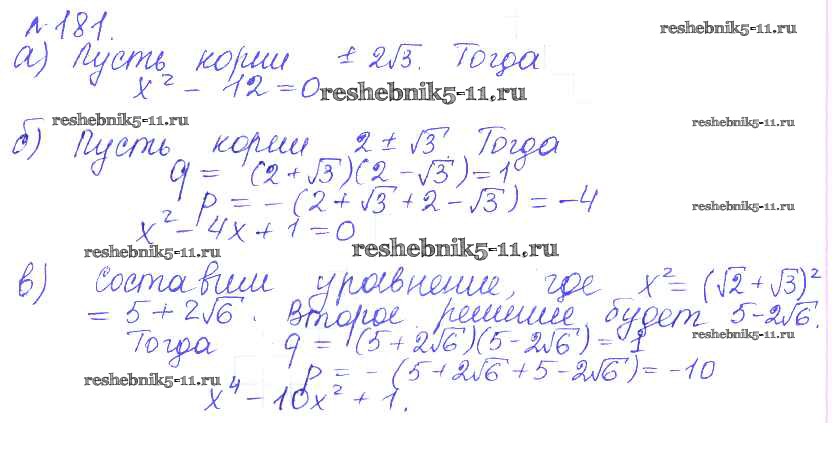 №181.
reshebnik5-11.ru
а) Пусть корни ± 2√3. Тогда
x² - 12 = 0
reshebnik5-11.ru
reshebnik5-11.ru
reshebnik5-11.ru
б) Пусть корни 2 ± √3 Тогда
q = (2 + √3)(2 - √3) = 1
p = -(2 + √3 + 2 - √3) = -4
reshebnik5-11.ru
x² - 4x + 1 = 0
reshebnik5-11.ru
reshebnik5-11.ru
в) Составим уравнение, где x² = (√2 + √3)²
= 5 + 2√6. Второе решение будет 5 - 2√6.
Тогда q = (5 + 2√6)(5 - 2√6) = 1
reshebnik5-11.ru
p = -(5 + 2√6 + 5 - 2√6) = -10
reshebnik5-11.ru
x⁴ - 10x² + 1.